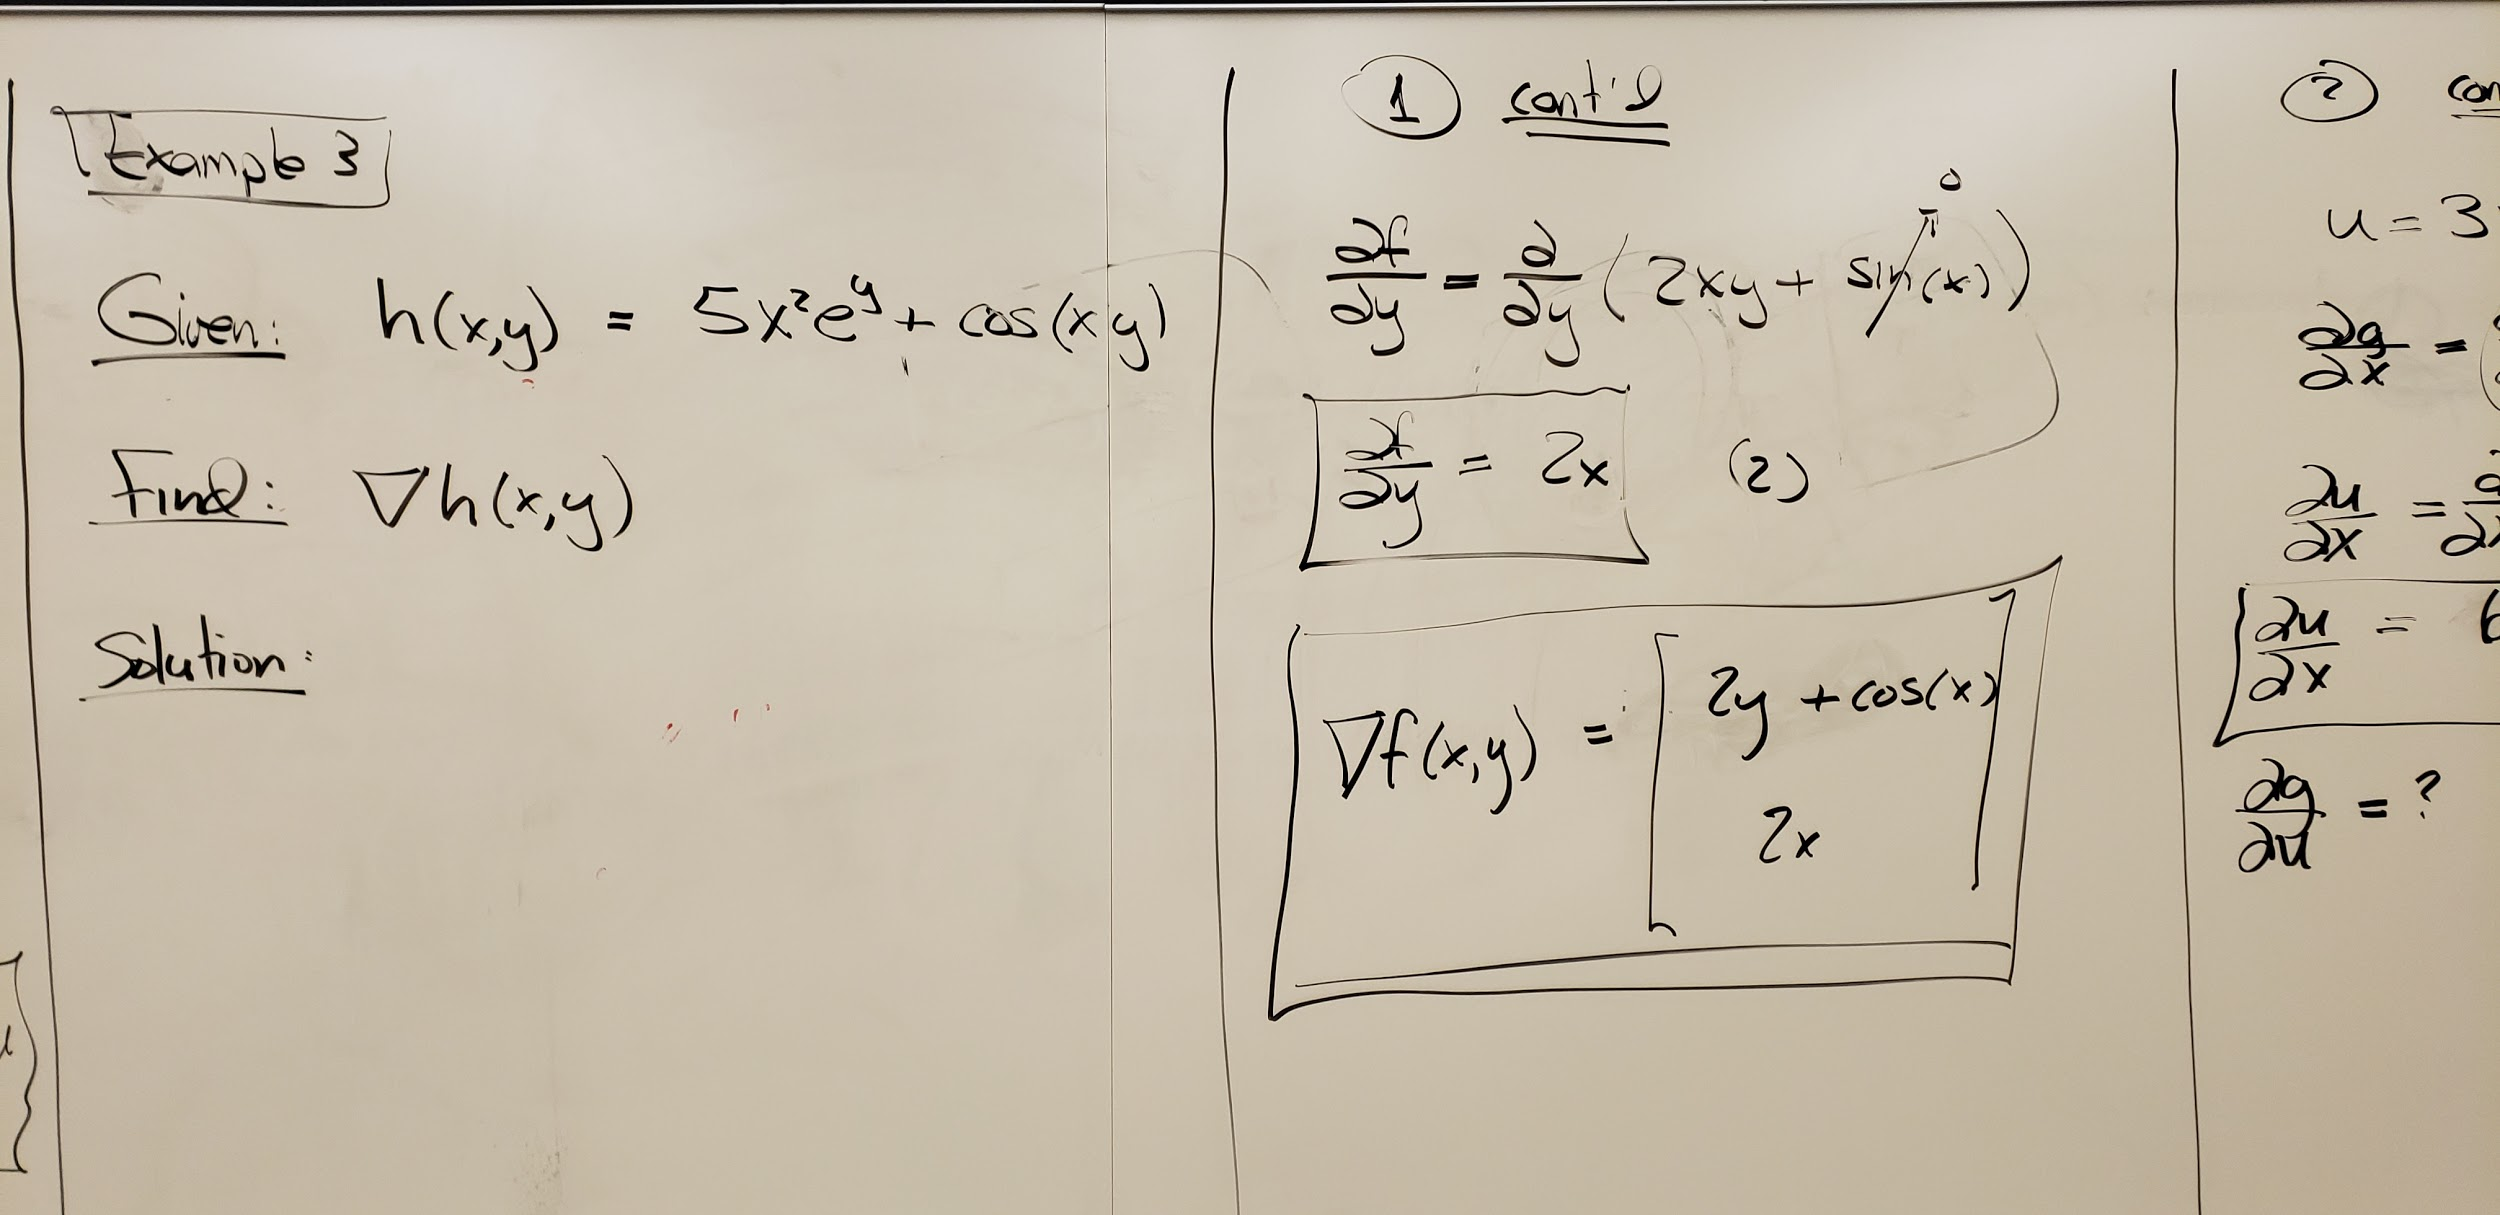 Example 3
Given: h(x,y) = 5x²eʸ + cos(xy)
Find: ∇h(x,y)
Solution:
① cont'd
∂f/∂y = ∂/∂y (2xy + sin(x)) 0
∂f/∂y = 2x (2)
∇f(x,y) = [ 2y + cos(x)
2x ]
② con
u = 3
∂g/∂x =
∂u/∂x =
∂u/∂x = 6
∂g/∂u = ?